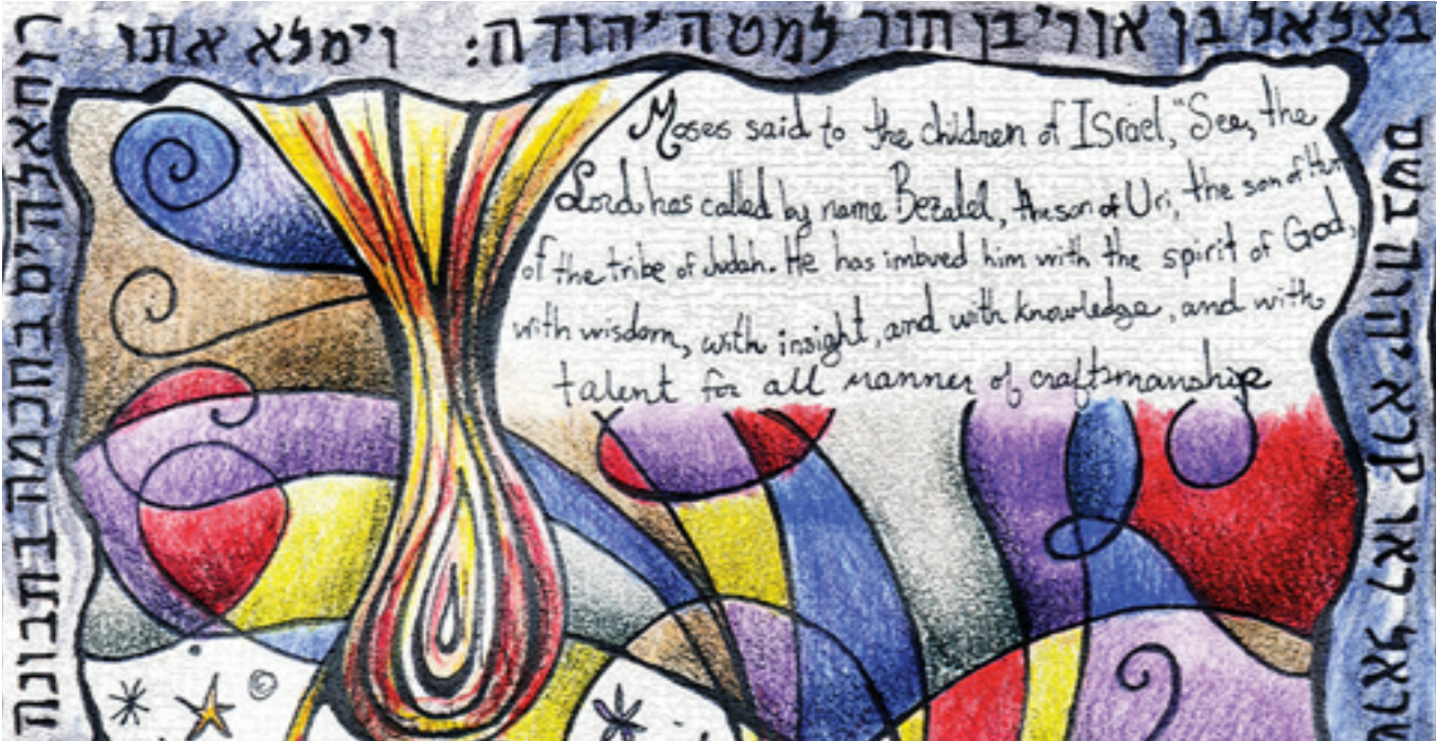 שראל ראו קרא יהוה בשם
בצלאל בן אורי בן חור למטה יהודה: וימלא אתו
רוח אלהים בחכמה בתבונה
Moses said to the children of Israel, "See, the
Lord has called by name Bezalel, the son of Uri, the son of Hur
of the tribe of Judah. He has imbued him with the spirit of God,
with wisdom, with insight, and with knowledge, and with
talent for all manner of craftsmanship
©